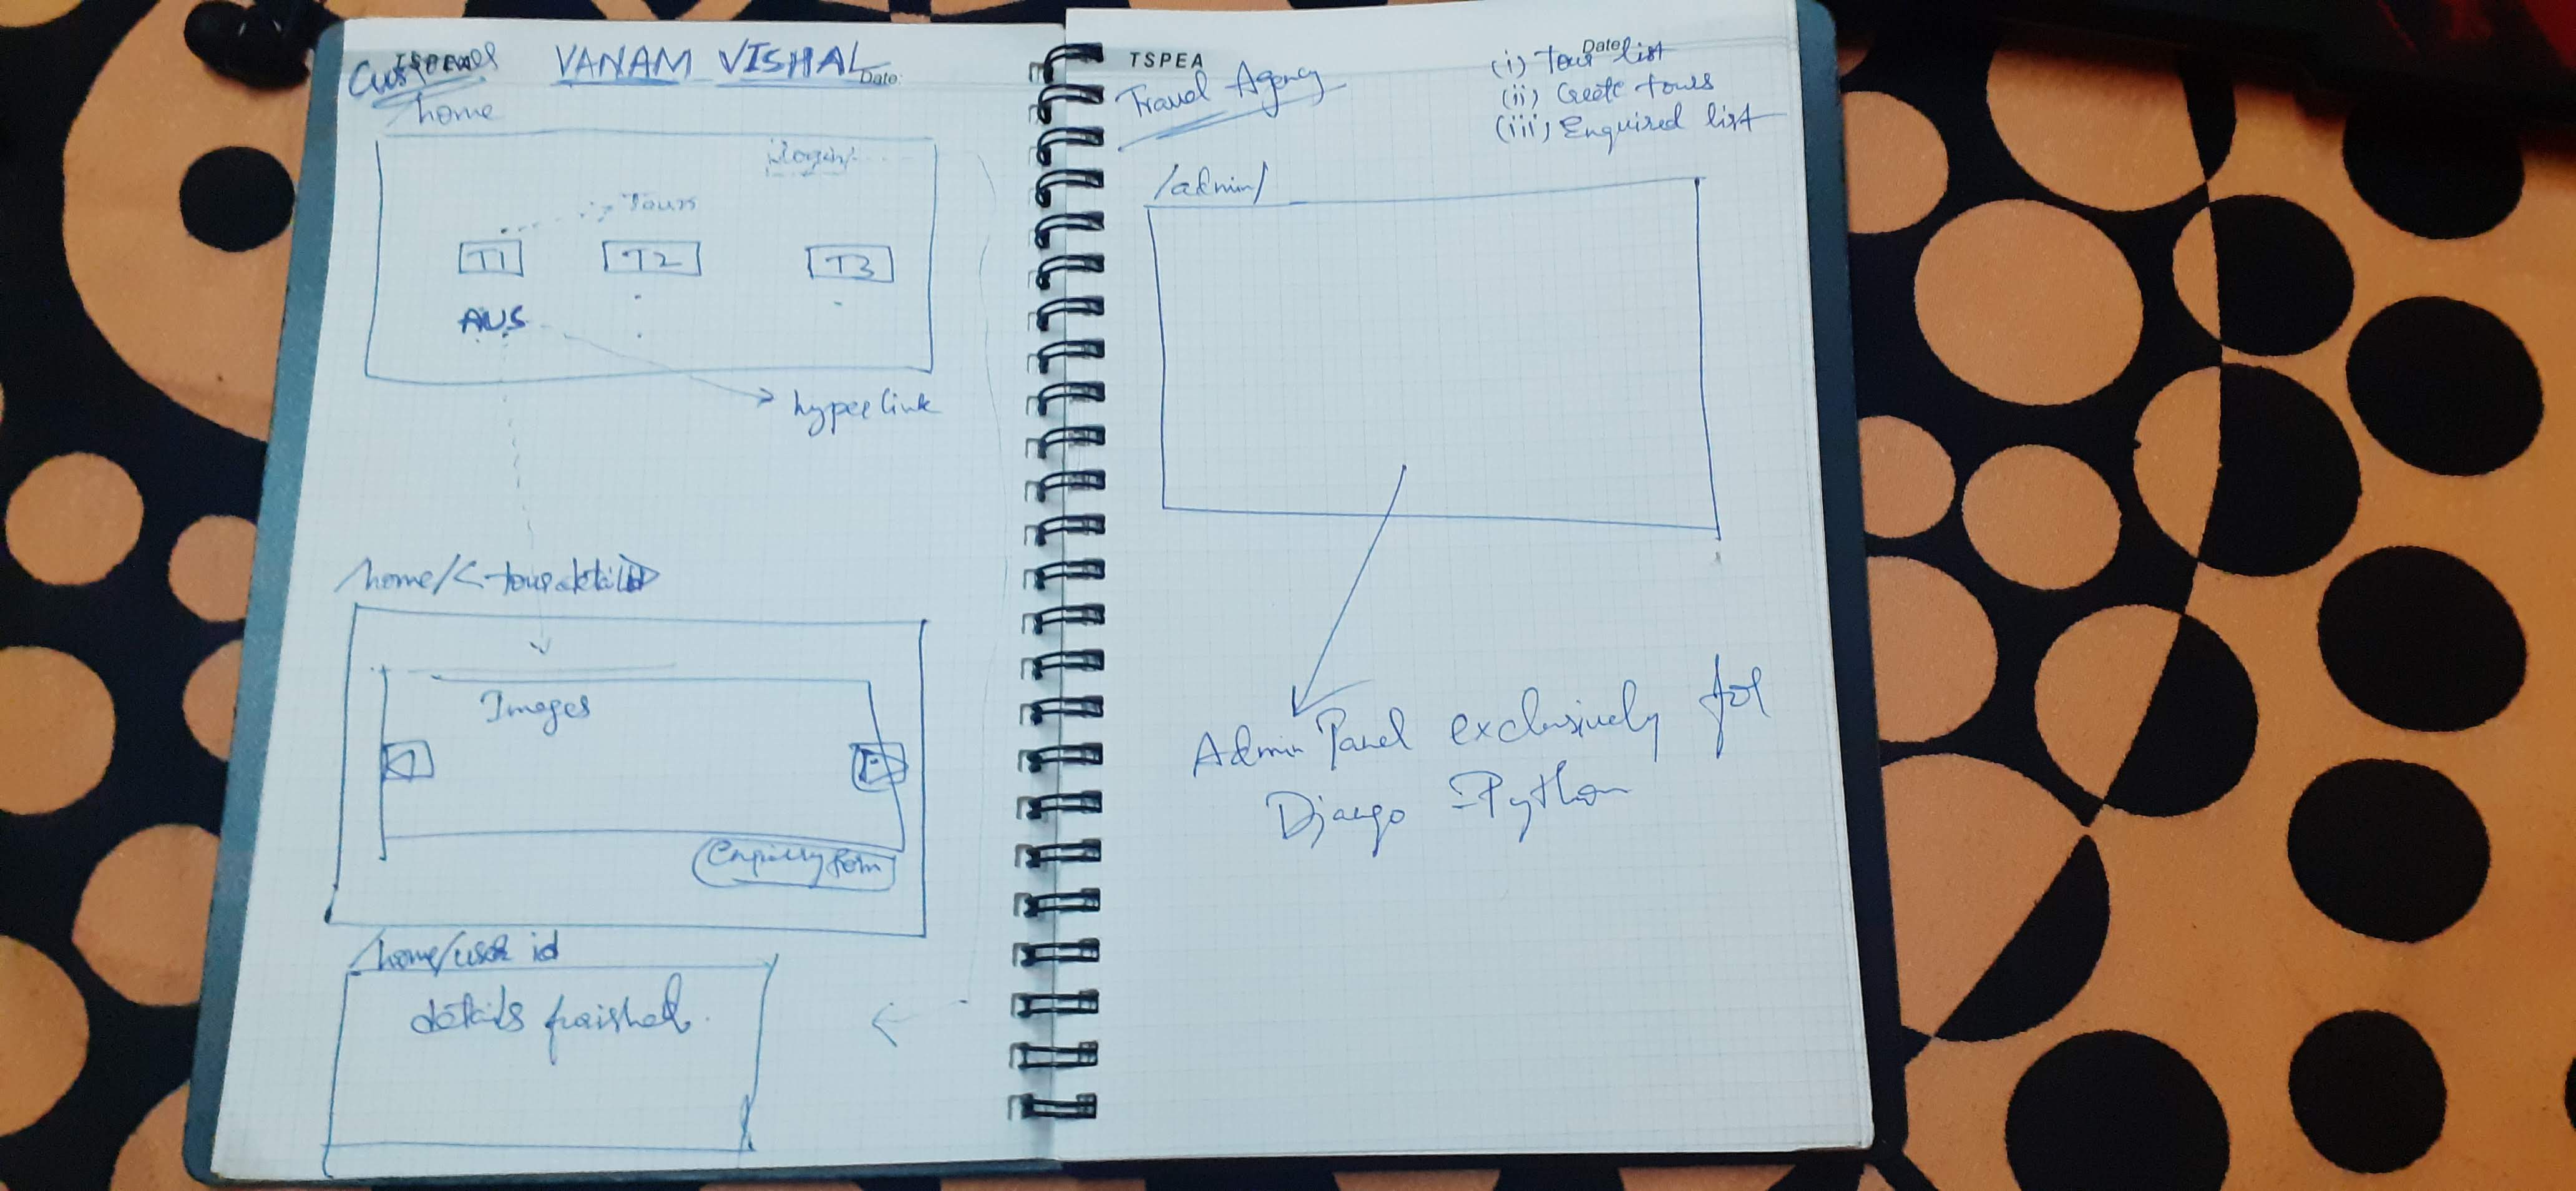 Customer
VANAM VISHAL
Date:
/home
Login/
Tours
T1 T2 T3
AUS
hyperlink
/home/<tour detail id>
Images
Enquiry form
/home/user id
details
TSPEA
Date
Travel Agency
(i) Tour list
(ii) Create tours
(iii) Enquired list
/admin/
Admin Panel exclusively for
Django - Python